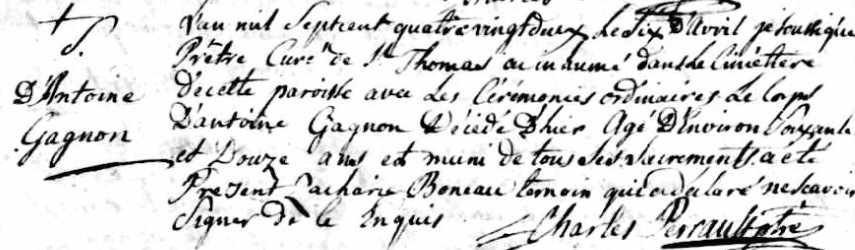 +
S.
D'Antoine
Gagnon
L'an mil Septcent quatre vingt deux, Le Six D'Avril je soussigné
Prêtre Curé de St Thomas ai inhumé dans Le Cimettere
De cette paroisse avec Les Cérémonies ordinaires Le Corps
D'antoine Gagnon Décédé D'hier Agé D'Environ Soixante
et Douze ans et muni de tous Ses Sacrements, a été
Présent Zacharie Boneau temoin qui a déclaré ne Scavoir
Signer De ce Enquis Charles Perrault ptre